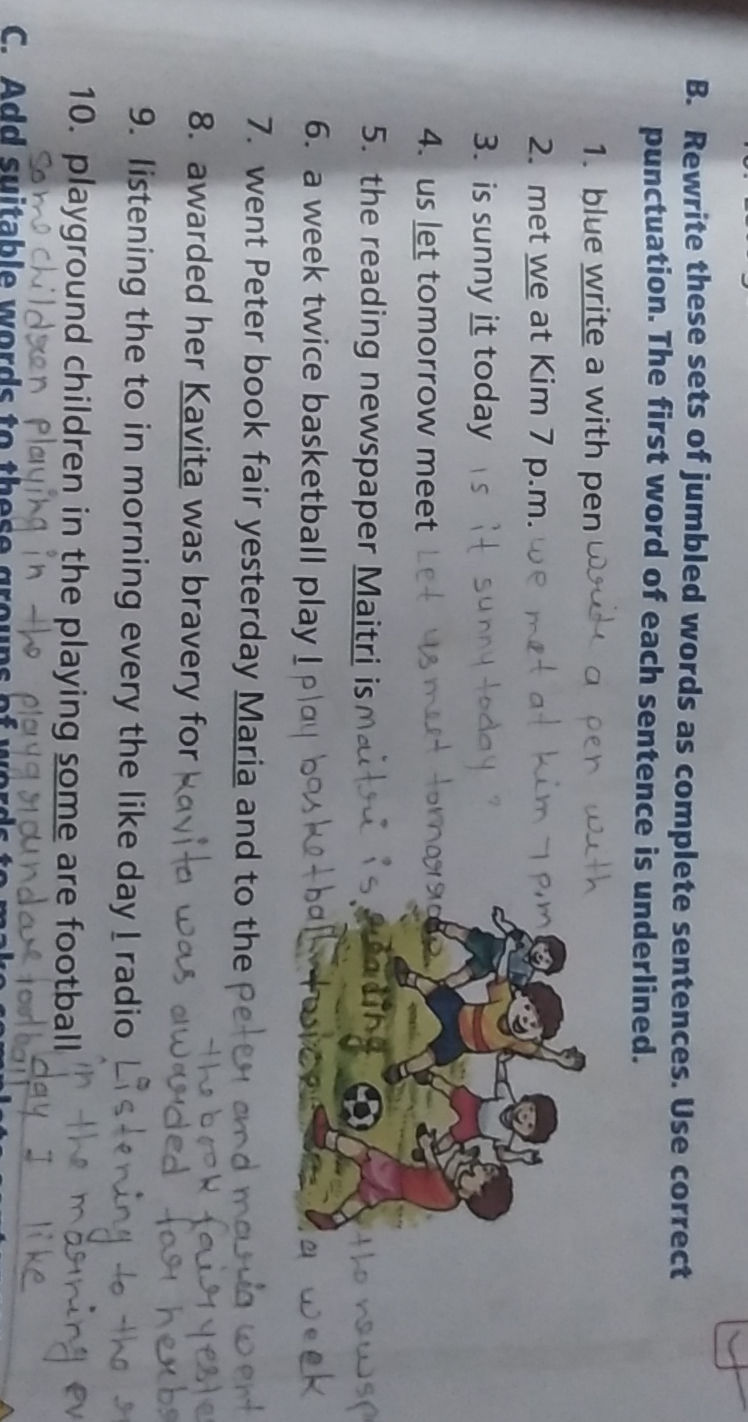 B. Rewrite these sets of jumbled words as complete sentences. Use correct
punctuation. The first word of each sentence is underlined.
1. blue write a with pen write a pen with
2. met we at Kim 7 p.m. we met at kim 7 p.m
3. is sunny it today is it sunny today ?
4. us let tomorrow meet Let us meet tomorrow
5. the reading newspaper Maitri is maitri is reading the newsp
6. a week twice basketball play I play basketball twice a week
7. went Peter book fair yesterday Maria and to the peter and maria went
the book fair yeste
8. awarded her Kavita was bravery for kavita was awarded for her
9. listening the to in morning every the like day I radio Listening to the
in the morning ev
10. playground children in the playing some are football day I like
some children playing in the playground are football
C. Add suitable words to these groups of words to make